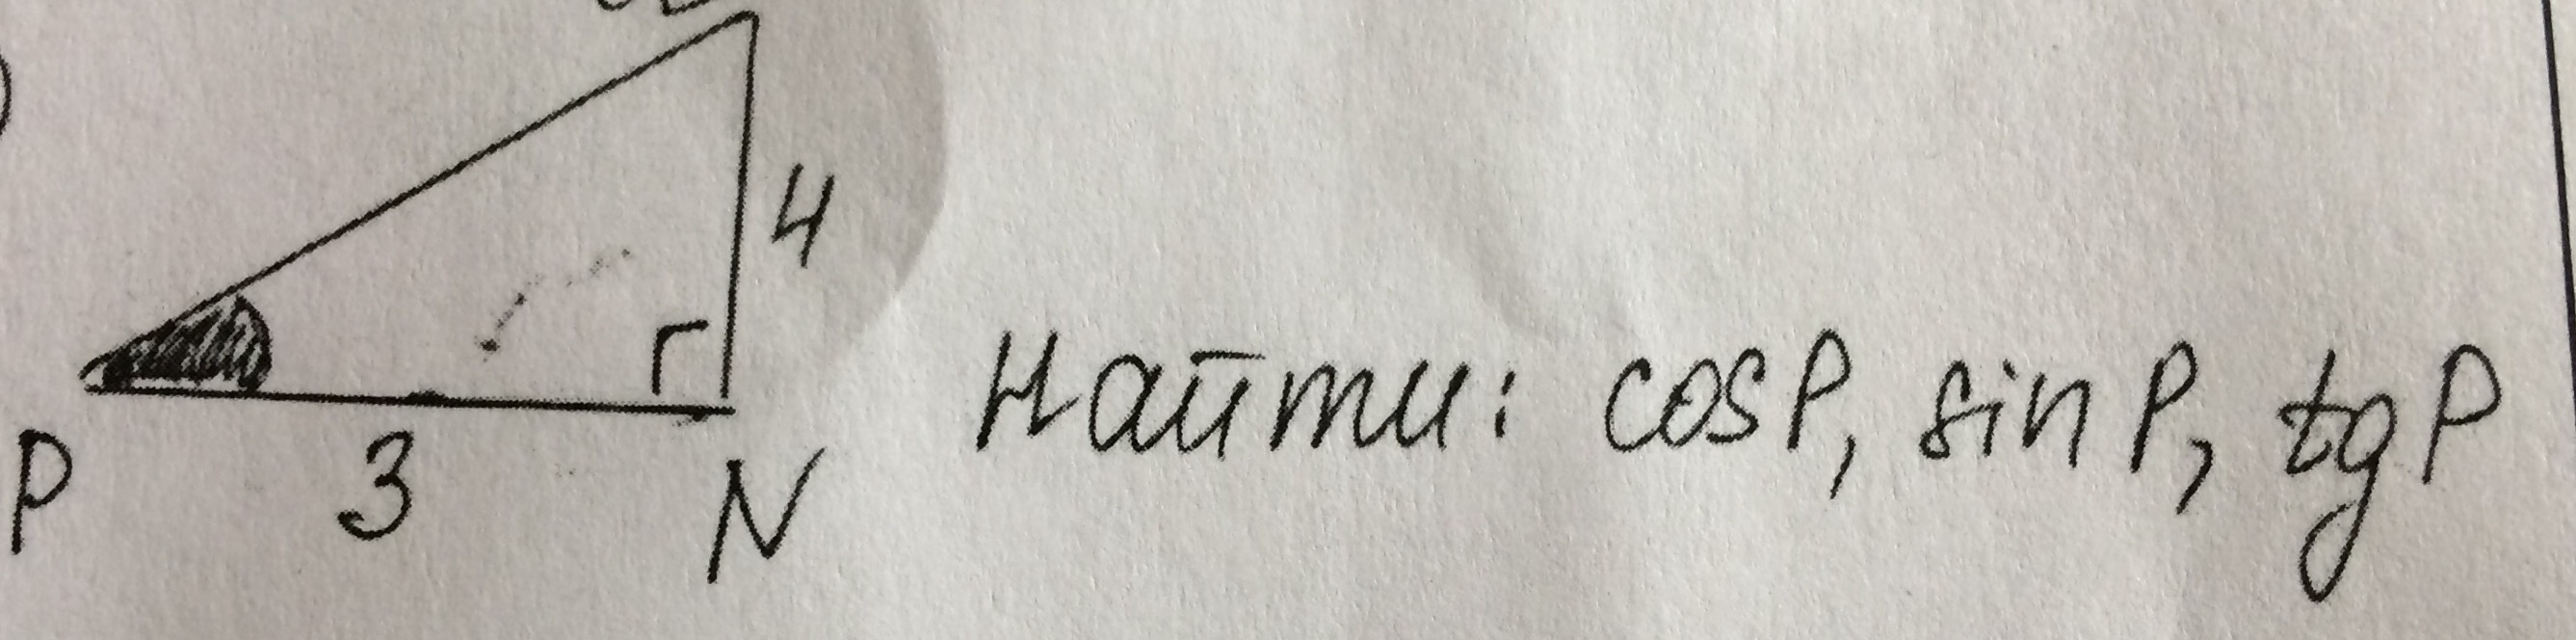 4
P 3 N
Найти: cos P, sin P, tg P